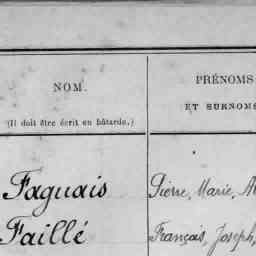 NOM.
(Il doit être écrit en bâtarde.)
PRÉNOMS
ET SURNOMS
Faguais
Pierre, Marie,
Faillé
François, Joseph,